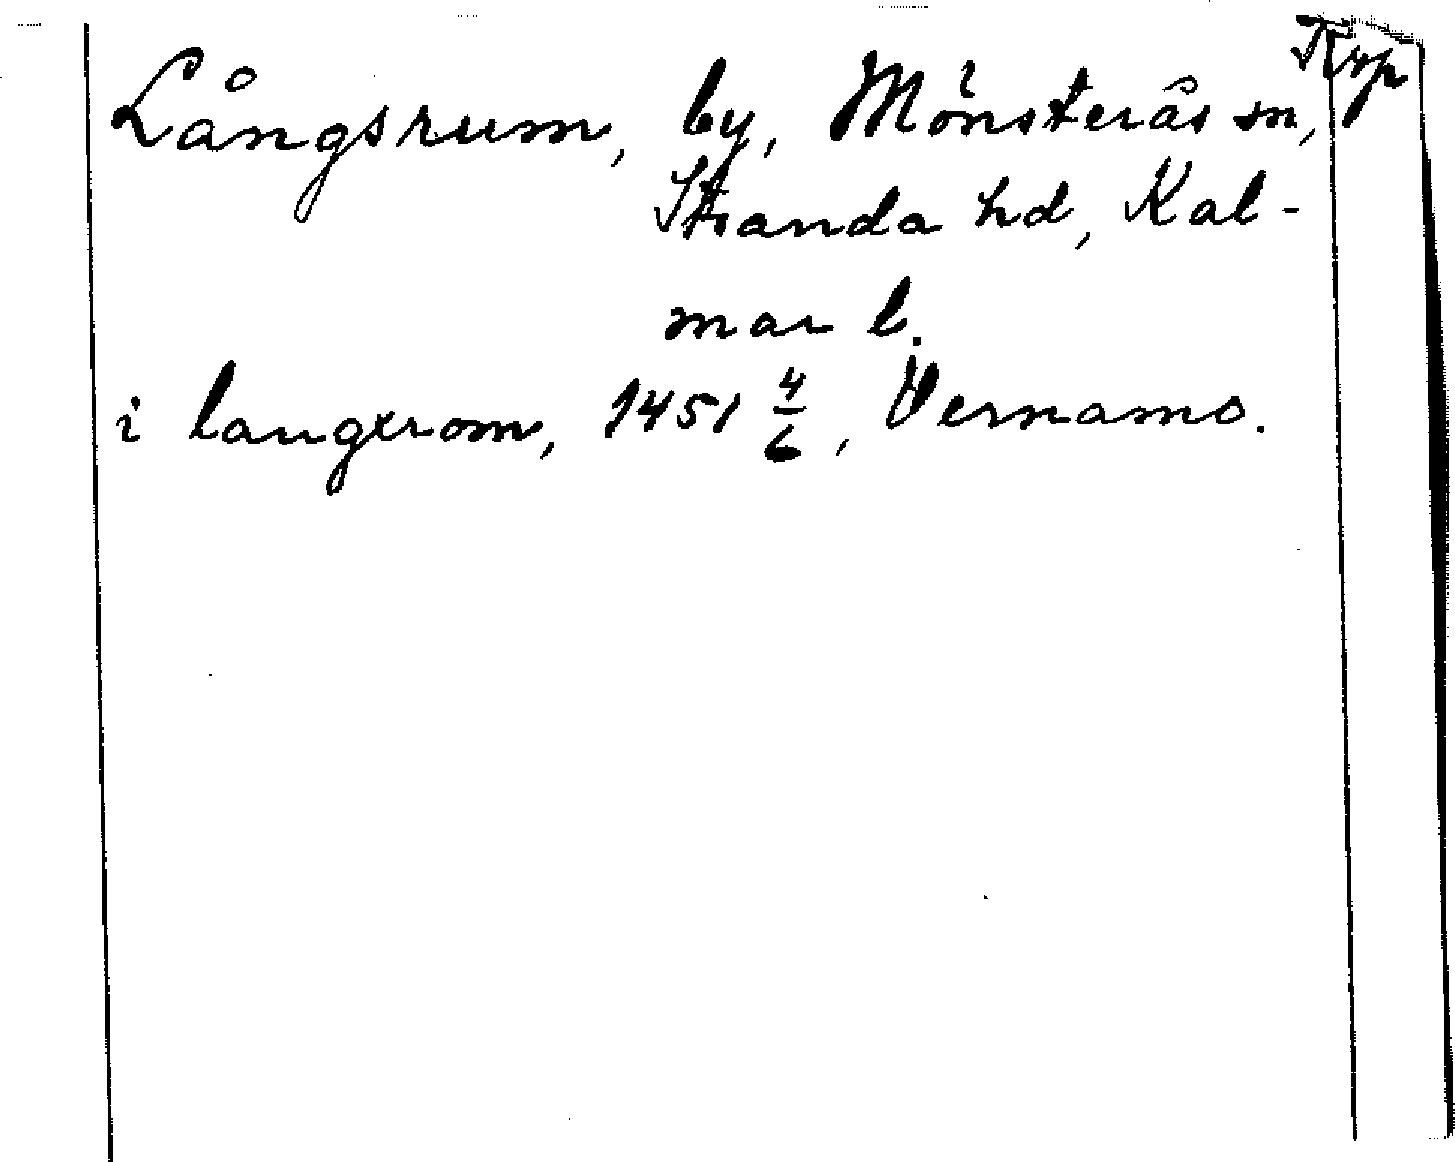 Kop
Långsrum, by, Mönsterås sn,
Stranda hd, Kal-
mar l.
i langxrom, 1451 4/6, Vernamo.